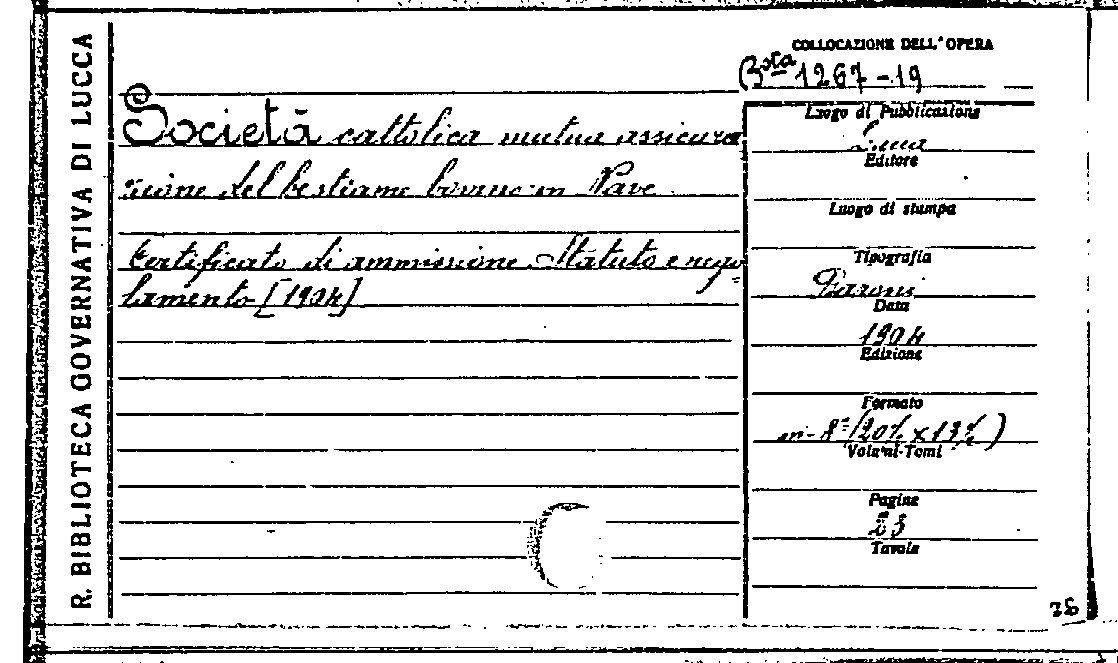 R. BIBLIOTECA GOVERNATIVA DI LUCCA
COLLOCAZIONE DELL'OPERA
Bsta 1267-19
Società cattolica mutua assicura
zione del bestiame bovino in Nave
Certificato di ammissione Statuto e rego
lamento [1904]
Luogo di Pubblicazione
Lucca
Editore
Luogo di stampa
Tipografia
Baroni
Data
1904
Edizione
Formato
in-8º (20½ x 13½)
Volumi-Tomi
Pagine
23
Tavole